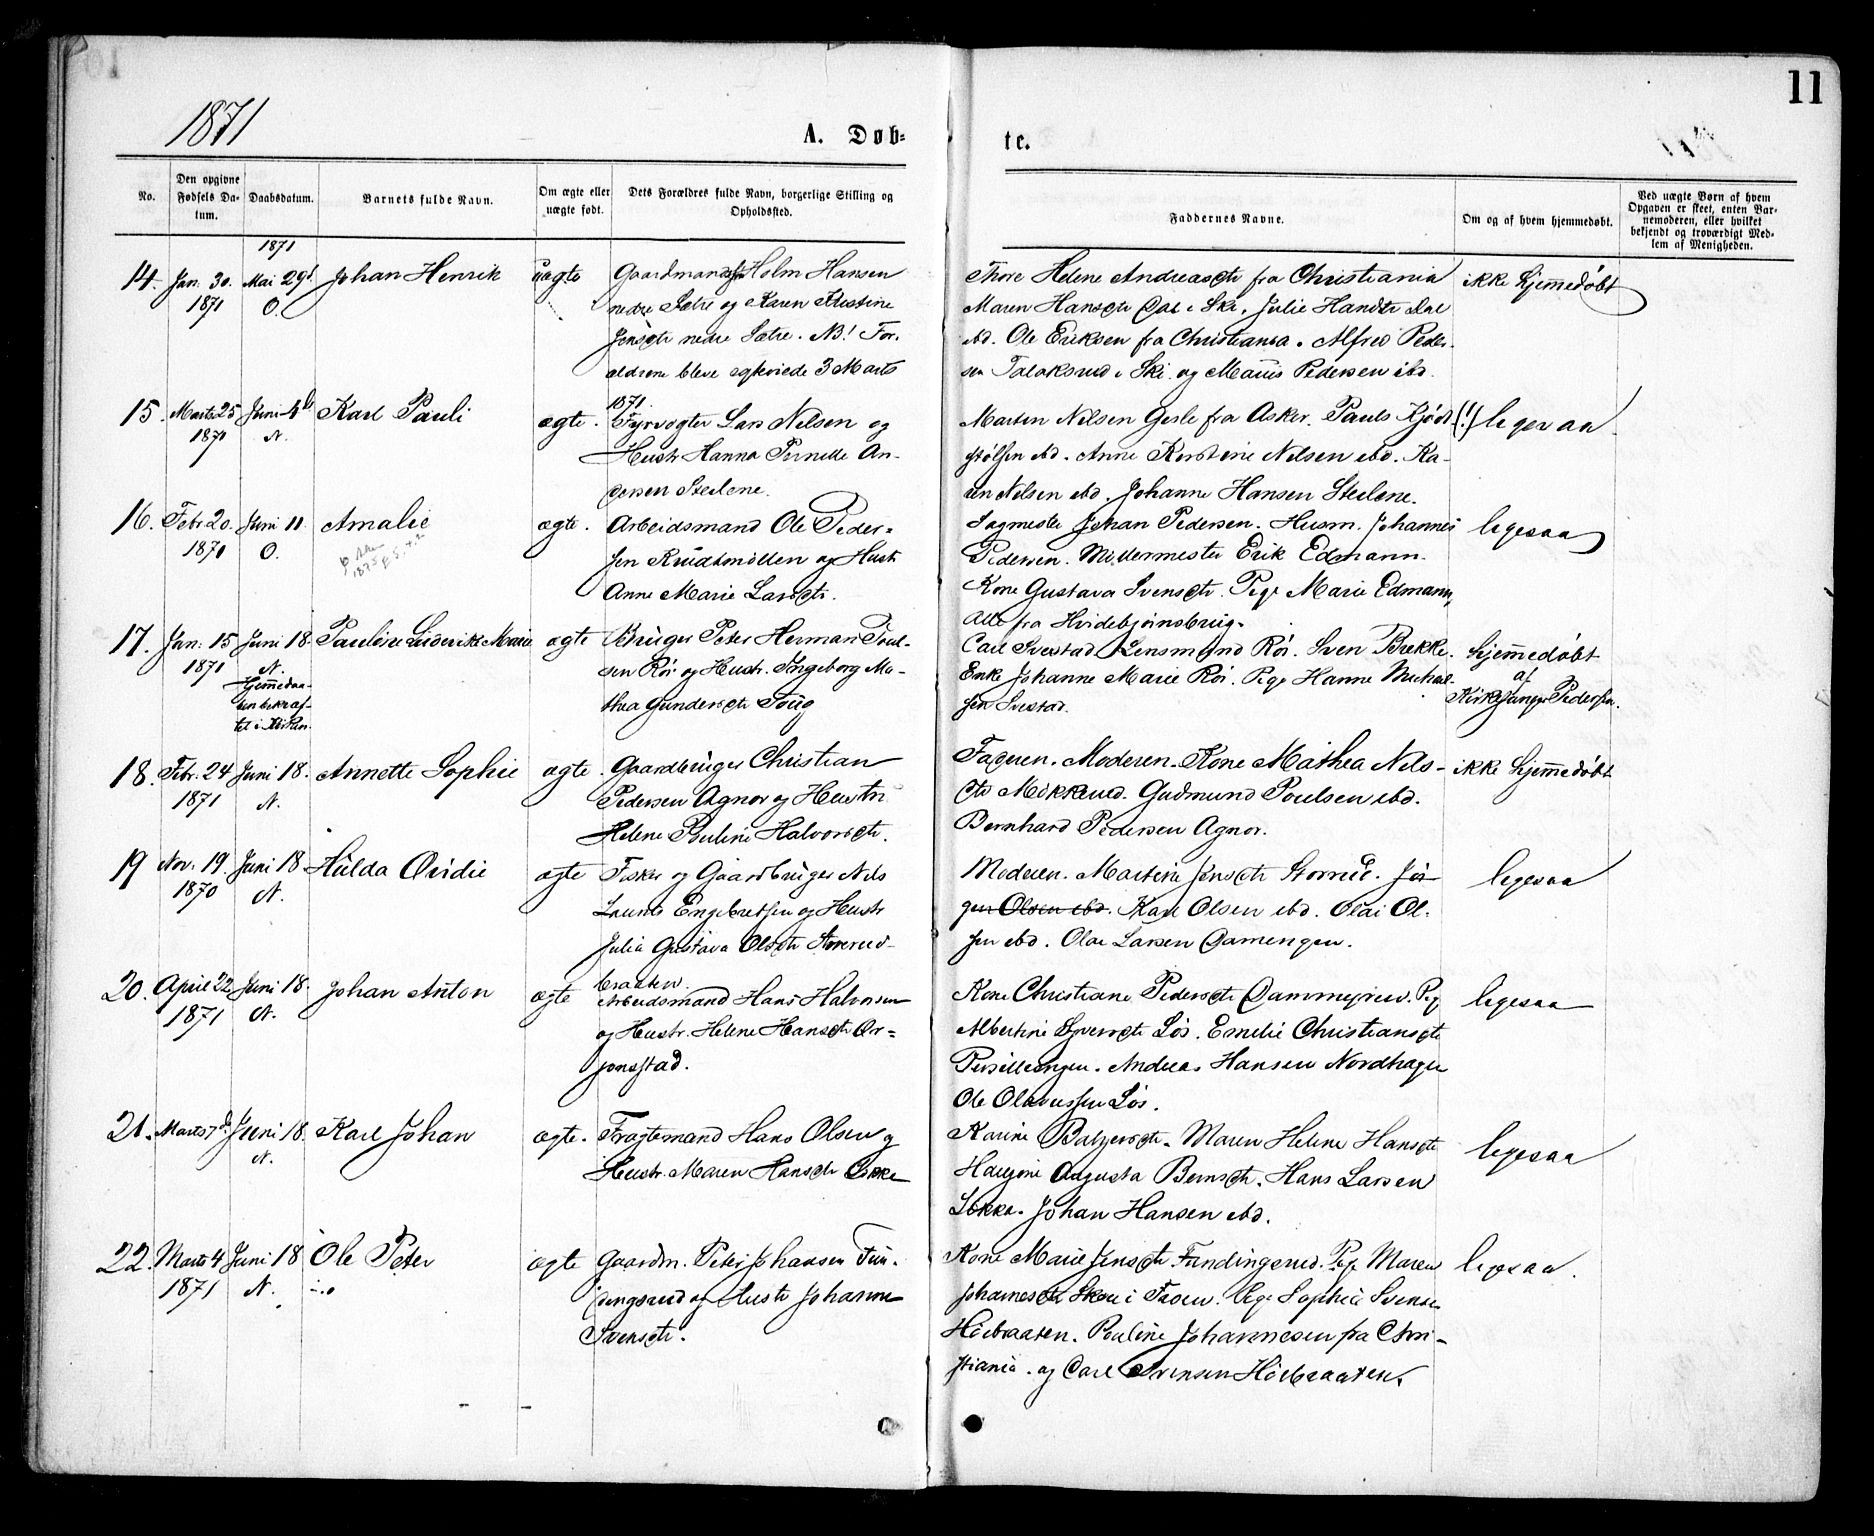 11
1871
A. Døb-
te.
No.
Den opgivne Fødsels Datum.
Daabsdatum.
Barnets fulde Navn.
Om ægte eller uægte født.
Dets Forældres fulde Navn, borgerlige Stilling og Opholdssted.
Faddernes Navne.
Om og af hvem hjemmedøbt.
Ved uægte Børn af hvem Opgaven er skeet, enten Barnemoderen, eller hvilket bekjendt og troværdigt Medlem af Menigheden.
1871
14. Jan. 30. 1871
Mai 29d. O.
Johan Henrik
uægte
Gaardmands Holm Hansen
nedre Sætre og Karen Kristine
Jensdtr nedre Sætre. NB! For-
ældrene bleve egteviede 3 Marts
1871.
Thore Helene Andreasdtr fra Christiania
Maren Hansdtr Dal i Ski. Julie Hansdtr Dal
ebd. Ole Eriksen fra Christiania. Alfred Peder-
sen Taloksrud i Ski og Maris Pedersen ibd.
ikke hjemmedøbt
15. Marts 25 1871
Juni 4d. N.
Karl Pauli
ægte.
Fyrvogter Lars Nilsen og
Hustr Hanna Pernille An-
dersen Steilene.
Marten Nilsen Gisle fra Asker. Pauls Kjöd- (!)
stölsen ebd. Anne Kirstine Nilsen ebd. Ka-
ren Nilsen ebd. Johanne Hansen Steilene.
legesaa
16. Febr 20. 1871
Juni 11 O.
Amalie
ægte.
Arbeidsmand Ole Peder-
sen Knudsmöllen og Hustr
Anne Marie Larsdtr.
Sagmester Johan Pedersen. Husm. Johannes
Pedersen. Möllermester Erik Edmann.
Kone Gustava Svensdtr. Pige Marie Edmann,
Alle fra Hvidebjørnsbrug.
legesaa
17. Jan. 15 1871
Juni 18. N.
Hjemmedaa-
ben bekræf-
tet i Kirken
Pauline Marie
ægte
Bruger Peter Herman Poul-
sen Röi og Hustr. Ingeborg Ma-
thea Gundersdtr Toug
Carl Svestad Lensmand Röi. Sven Brekke.
Enke Johanne Marie Röi. Pige Hanne Michael-
sen Svestad.
hjemmedøbt
af
Kirkesanger Pedersen.
18. Febr. 24 1871
Juni 18. N.
Annette Sophie
ægte.
Gaardbruger Christian
Pedersen Agnor og Hustr
Helene Pauline Halvorsdtr.
Faderen. Moderen. Kone Mathea Nils-
dtr Mikkerud. Gudmund Poulsen ebd.
Bernhard Pedersen Agnor.
ikke hjemmedøbt
19 Nov. 19. 1870
Juni 18 N.
Hulda Ovidie
ægte
Fisker og Gaardbruger Nils
Laurits Engebretsen og Hustr
Julia Gustava Olsdtr Storrud-
braaten.
Moderen. Martine Jensdtr Storrud. Jör-
gen Olsen ebd. Karl Olsen ebd. Olai Ol-
sen ebd. Olai Larsen Damengen.
legesaa
20. April 22 1871
Juni 18. N.
Johan Anton
ægte
Arbeidsmand Hans Halvorsen
og Hustr. Helene Hansdtr Ar-
jonsstad.
Kone Christiane Pedersdtr. Pige
Albertine Syversdtr Lös. Emelie Christiansdtr
Persilleengen. Andreas Hansen Nordhagen
Ole Olavessen Lös.
legesaa
21. Marts 7d.
Juni 18. N.
Karl Johan
ægte.
Fragtemand Hans Olsen og
Hustr. Maren Hansdtr Lökke
Karine Balzersdtr. Maren Helene Hansdtr
Augusta Berntsdtr. Hans Larsen
Lökke. Johan Hansen ebd.
legesaa
22. Marts 4 1871
Juni 18 N.
Ole Peter
ægte
Gaardm. Peter Johansen Fun-
dingsrud og Hustr Johanne
Svensdtr.
Kone Marie Jensdtr Fundingsrud. Pige Maren
Johannesdtr Skou i Froen. Pige Sophie Svensen
Höibraaten. Pauline Johannesen fra Chri-
stiania. og Carl Svensen Höibraaten.
legesaa.